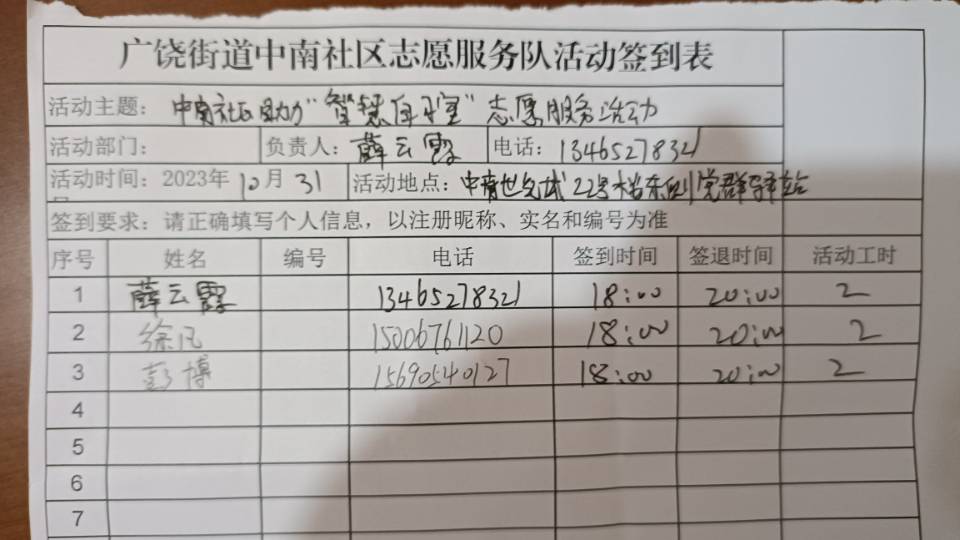 广饶街道中南社区志愿服务队活动签到表
活动主题： 中南社区助力"智慧自习室"志愿服务活动
活动部门： 负责人：薛云霞 电话：13465278321
活动时间：2023年10月31 活动地点：中南世纪城22号楼东侧党群驿站
签到要求：请正确填写个人信息，以注册昵称、实名和编号为准
序号 姓名 编号 电话 签到时间 签退时间 活动工时
1 薛云霞 13465278321 18:00 20:00 2
2 徐凡 15006761120 18:00 20:00 2
3 彭博 15690540127 18:00 20:00 2
4
5
6
7